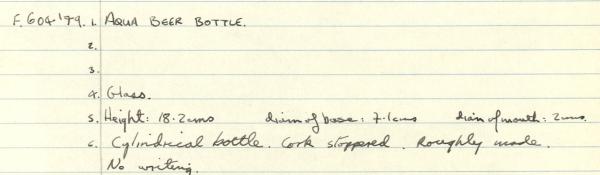 F.604'99. 1. AQUA BEER BOTTLE.
2.
3.
4. Glass.
5. Height: 18.2cms diam of base: 7.1cms diam of mouth: 2cms.
6. Cylindrical bottle. Cork stoppered. Roughly made.
No writing.